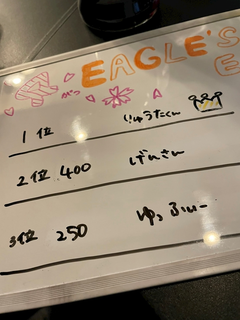 EAGLE'S
がつ
E
1位 りゅうたくん
2位 400 げんさん
3位 250 ゆっふぃー